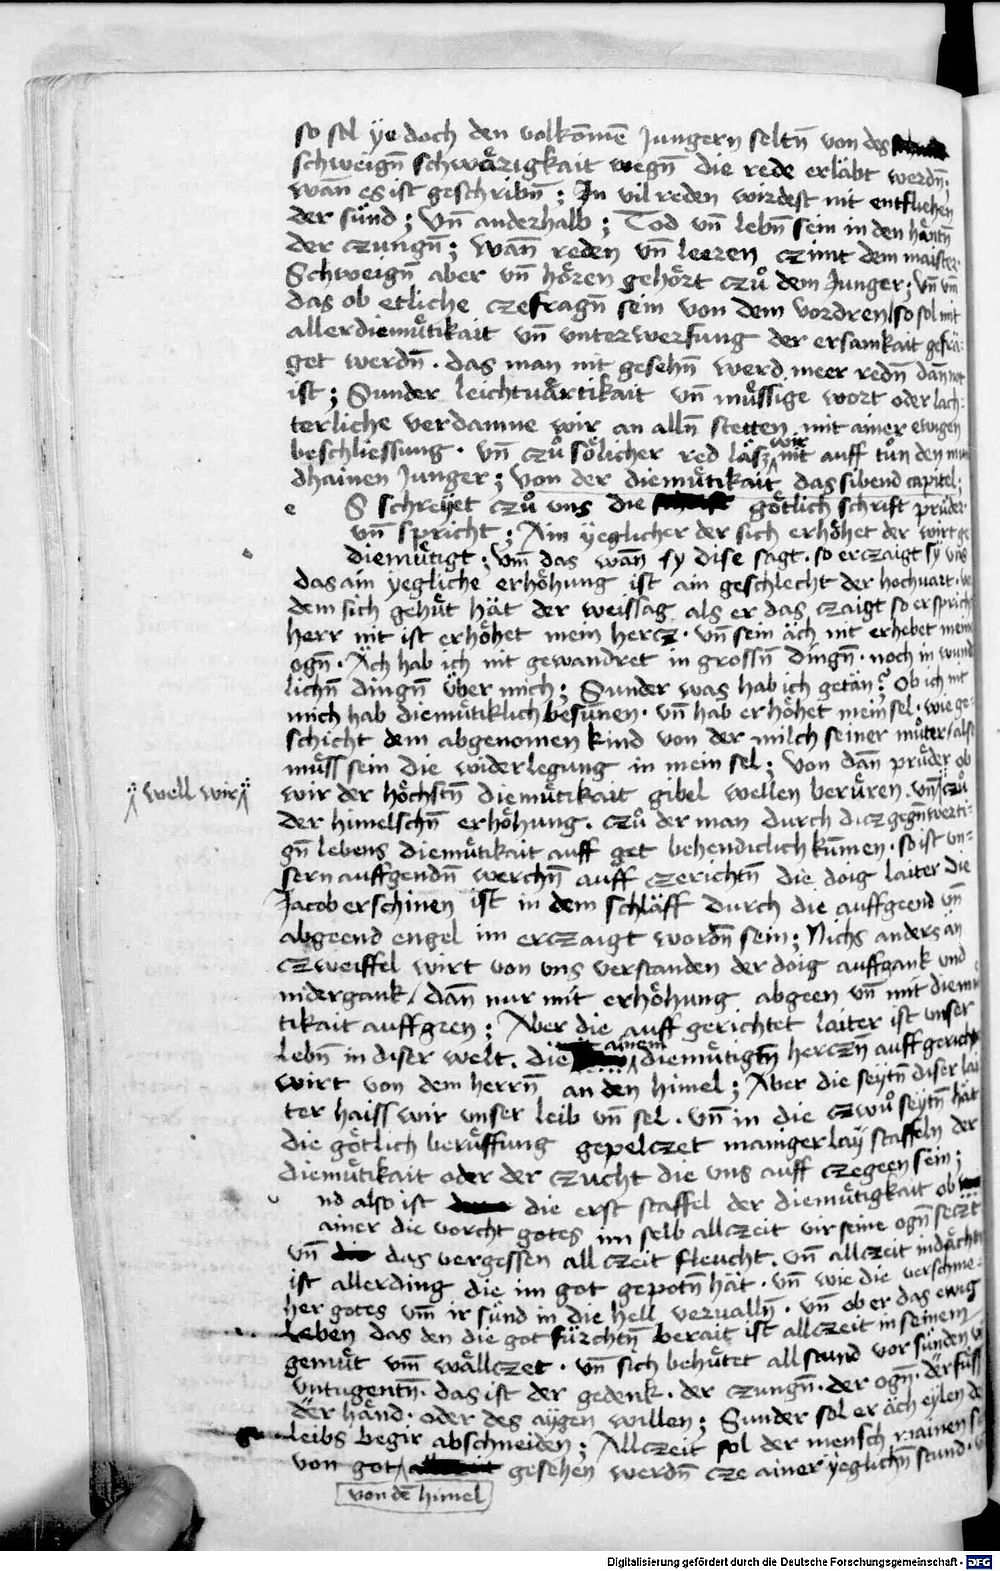 so sol ye doch den volkōmē Jungern seltn̄ von des
schweign̄ schwärigkait wegn̄ die rede erläbt werdn̄.
wan̄ es ist geschribn̄ ; In vil reden wirdest nit entfliehen
der sünd ; Vn̄ anderhalb ; Tod vn̄ lebn̄ sein in den häntn̄
der czungn̄ ; Wan̄ reden vn̄ leeren czimt dem maister
Schweign̄ aber vn̄ hören gehört czů dem Junger ; vn̄ vm̄
das ob etliche czefragn̄ sein von dem vordren / so sol mit
aller diemütikait vn̄ unterwerfung der ersamkait gefrä-
get werdn̄ . das man nit gesehn̄ werd meer redn̄ dan̄ not
ist ; Sunder leichtuärtikait vn̄ müssige wort oder lach-
terliche verdamne wir an alln̄ stetten mit ainer ewigen
beschliessung . vn̄ czů sölicher red läsz wir nit auff tůn den mun
dhainen Junger ; von der diemütikait das sibend capitel ;
e S schreyet czů vns die götlich schrift prüder
vn̄ spricht ; Ain yeglicher der sich erhöhet der wirt ge
diemütigt ; vm̄ das wan̄ sy dise sagt . so erczaigt sy vns
das ain yegliche erhöhung ist ain geschlecht der hochuart .
dem sich gehüt hät der weissag als er das czaigt so er spricht
herr nit ist erhöhet mein hercz . vn̄ sein äch nit erhebet mein
ogn̄ . Äch hab ich nit gewandret in grossn̄ dingn̄ . noch in wund
lichn̄ dingn̄ über mich ; Sunder was hab ich getän ? Ob ich nit
mich hab diemütiklich besunen . vn̄ hab erhöhet mein sel . wie ge-
schicht dem abgenomen kind von der milch seiner můter / also
müss sein die widerlegung in mein sel ; Von dan̄ prüder ob
wir der höchstn̄ diemütikait gibel wellen berüren . vn̄ czů
well wir
der himelschn̄ erhöhung . czů der man durch dicz gegn̄werti-
gn̄ lebens diemütikait auff get behendiclich kumen . so ist vn-
sern auffgendn̄ werchn̄ auff czerichtn̄ die doig laiter die
Jacob erschinen ist in dem schläff durch die auffgeend vn̄
abgeend engel im erczaigt wordn̄ sein ; Nichs anders än
czweiffel wirt von vns verstanden der doig auffgank vnd
nidergank / dan̄ nur mit erhöhung abgeen vn̄ mit diemü
tikait auffgeen ; Aber die auff gerichtet laiter ist unser
lebn̄ in diser welt . die ainem diemütigtn̄ herczn̄ auff gericht
wirt von dem herrn̄ an den himel ; Aber die seytn̄ diser lai
ter haiss wir unser leib vn̄ sel . vn̄ in die czwů seytn̄ hät
die götlich berüffung gepelczet maniger lay staffeln der
diemütikait oder der czucht die vns auff czegeen sein ;
v nd also ist die erst staffel der diemütigkait ob
ainer die vorcht gotes im selb allczeit vir seine ogn̄ seczt
vn̄ das vergessen all czeit fleucht . vn̄ allczeit indächtn̄
ist allerding die im got gepotn̄ hät . vn̄ wie die verschme-
her gotes vm̄ ir sünd in die hell vervalln̄ . vn̄ ob er das ewig
leben das den die got fürchtn̄ berait ist allczeit in seinem
gemüt vm̄ wällczet . vn̄ sich behütet all stund vor sünden vn̄
vntugentn̄ . das ist der gedenk . der czungn̄ . der ogn̄ . der füss
der händ . oder des aygen willen ; Sunder sol er äch eylen
leibs begir abschneiden ; Allczeit sol der mensch mainen
von got gesehen werdn̄ cze ainer yeglichn̄ stund .
von dē himel
Digitalisierung gefördert durch die Deutsche Forschungsgemeinschaft - DFG